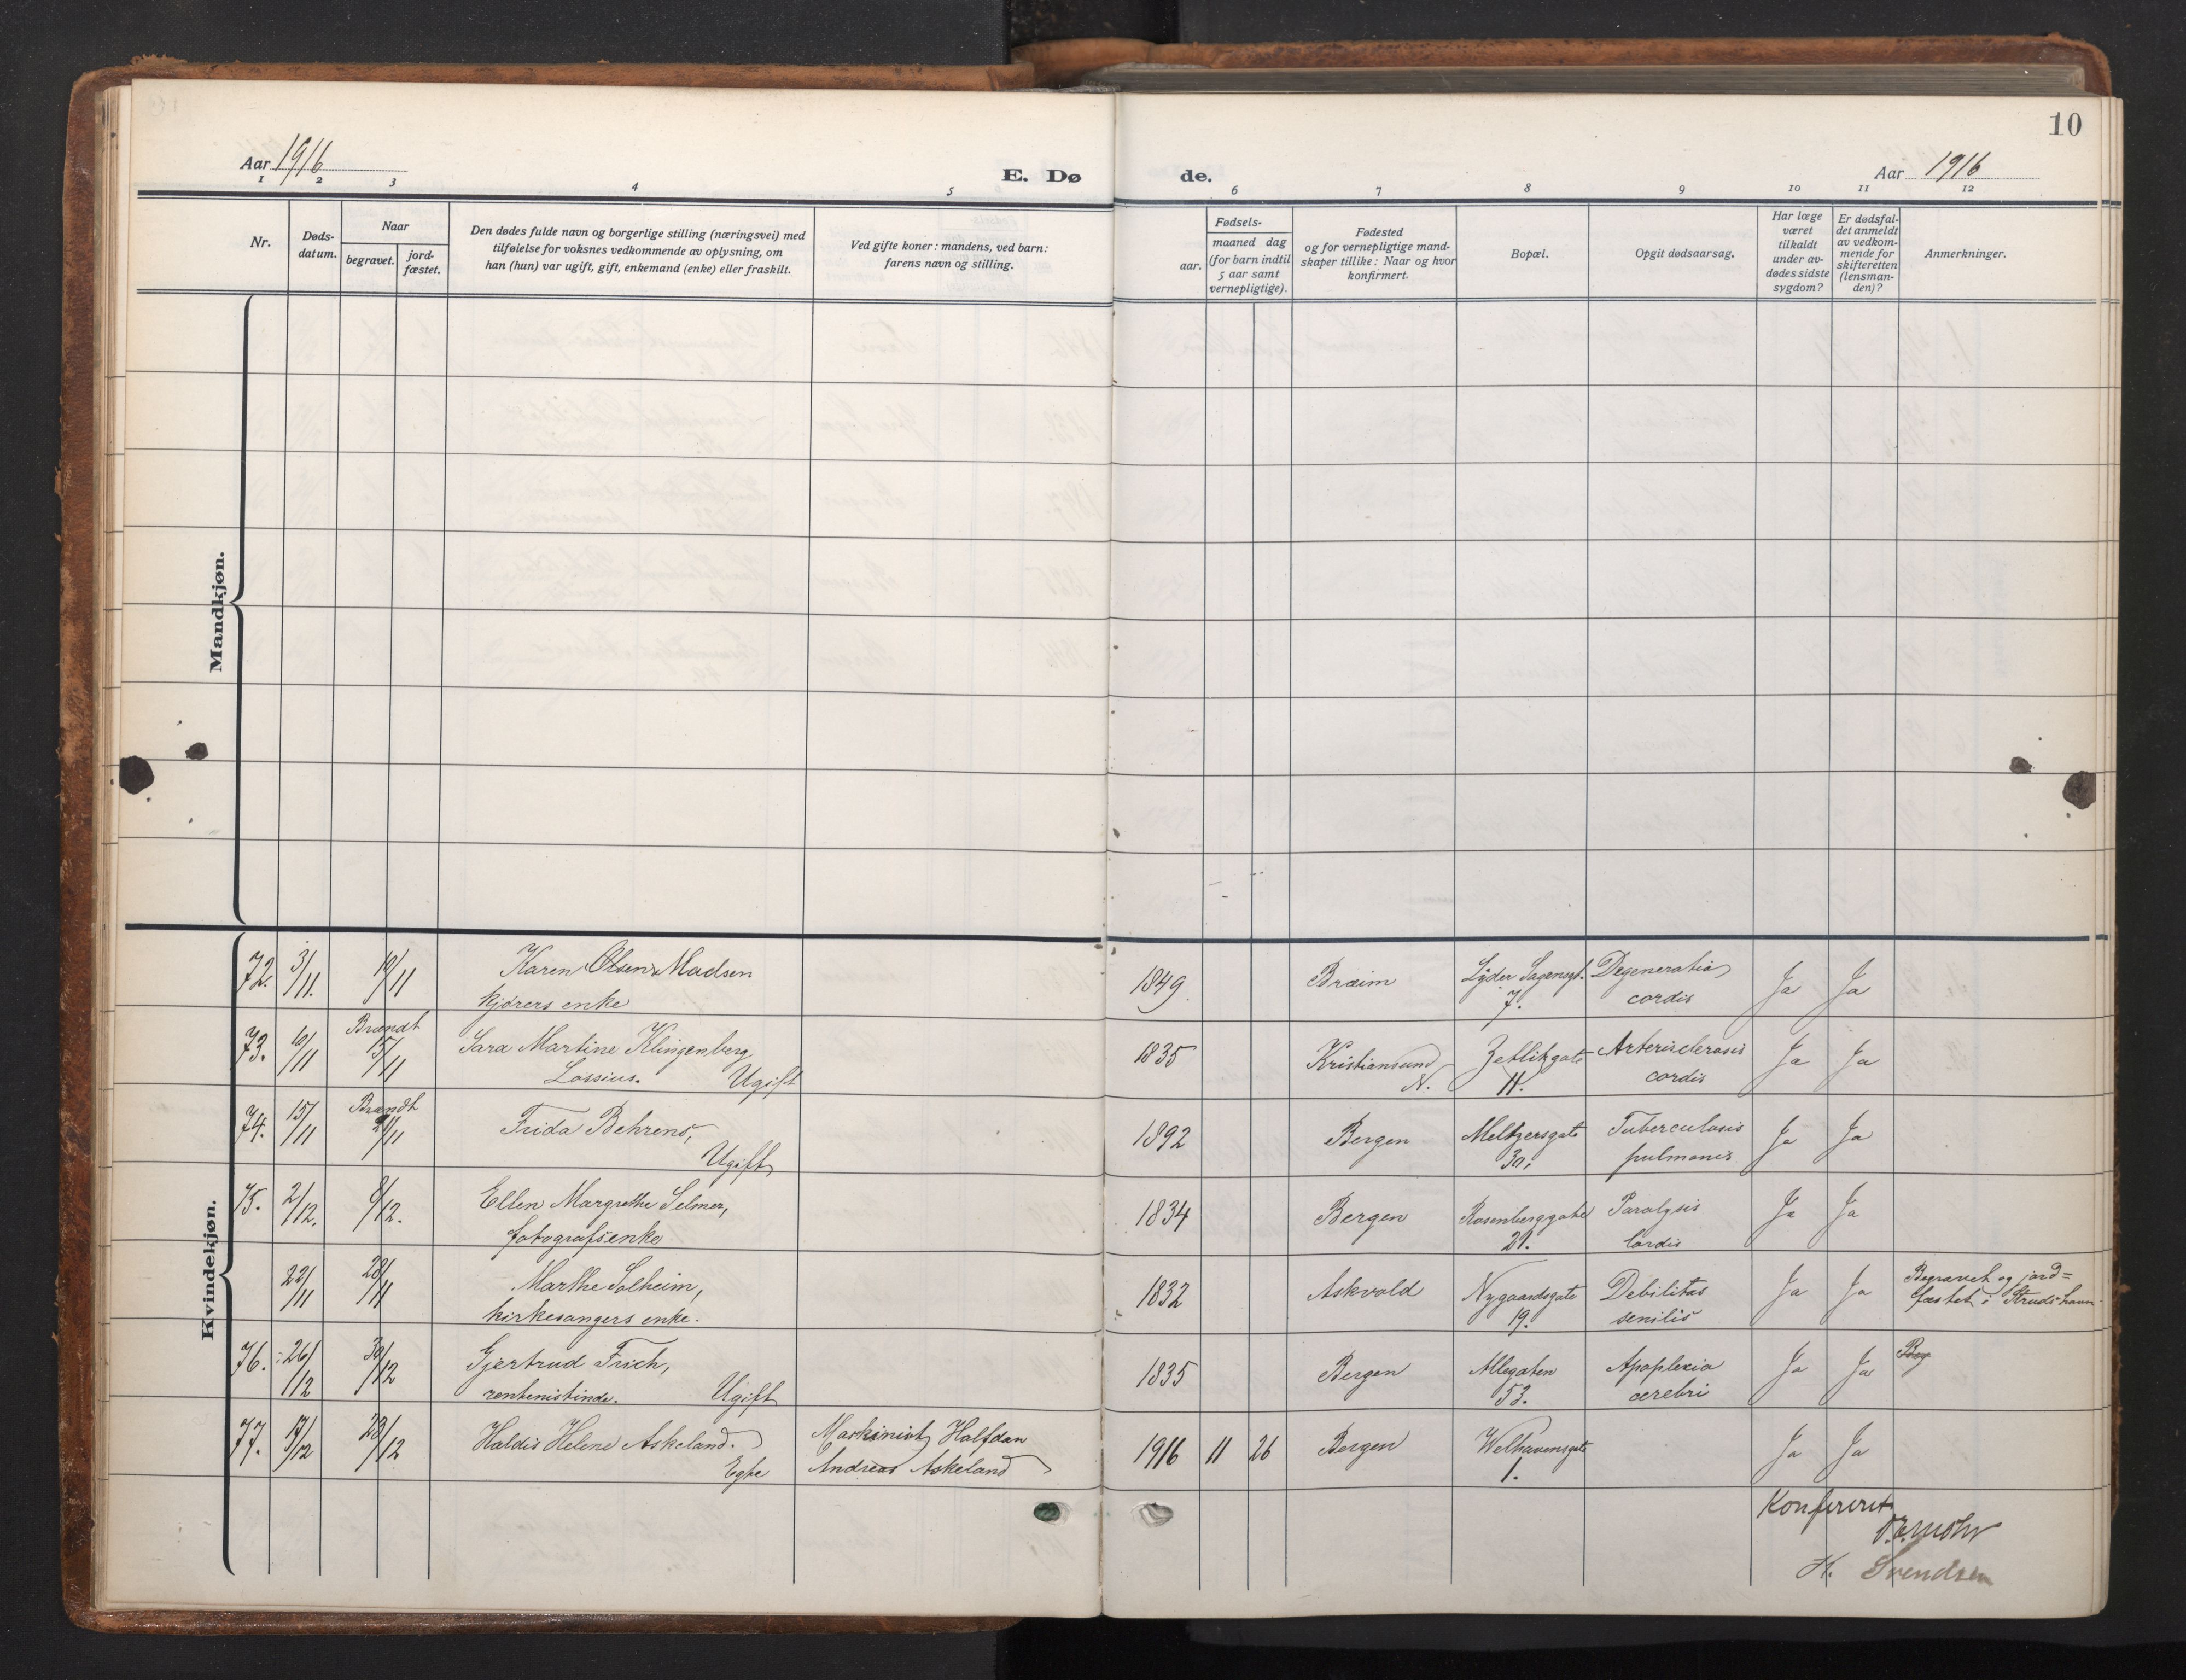 10
Aar 1916
E. Dø
de.
Aar 1916
1 2 3 4 5 6 7 8 9 10 11 12
Nr.
Døds-
datum.
Naar
begravet.
jord-
fæstet.
Den dødes fulde navn og borgerlige stilling (næringsvei) med
tilføielse for voksnes vedkommende av oplysning, om
han (hun) var ugift, gift, enkemand (enke) eller fraskilt.
Ved gifte koner: mandens, ved barn:
farens navn og stilling.
Fødsels-
aar.
maaned dag
(for barn indtil
5 aar samt
vernepligtige).
Fødested
og for vernepligtige mand-
skaper tillike: Naar og hvor
konfirmert.
Bopæl.
Opgit dødsaarsag.
Har læge
været
tilkaldt
under av-
dødes sidste
sygdom?
Er dødsfal-
det anmeldt
av vedkom-
mende for
skifteretten
(lensman-
den)?
Anmerkninger.
Mandkjøn.
Kvindekjøn.
72. 3/11. 10/11 Karen Olsen Madsen
kjørers enke
1849 Bræim Lyder Sagensgt.
7.
Degeneratio
cordis
Ja Ja
73. 10/11 Brændt
15/11
Sara Martine Klingenberg
Lossius. Ugift
1835 Kristiansund
N.
Zetlitzgate
11.
Arterisclerosis
cordis
Ja Ja
74. 15/11 Brændt
21/11
Frida Behrens,
Ugift
1892 Bergen Meltzersgate
30.
Tuberculosis
pulmonis
Ja Ja
75. 2/12. 8/12. Ellen Margrethe Selmer,
fotografsenke
1834 Bergen Rosenberggate
21.
Paralysis
Cordis
Ja Ja
22/11 28/11 Marthe Solheim,
kirkesangers enke.
1832 Askvold Nygaardsgate
19.
Debilitas
senilis
Ja Ja
Begravet og jord=
fæstet i Strudshavn.
76. 26/12 30/12 Gjertrud Frich,
rentenistinde. Ugift
1835 Bergen Allegaten
53.
Apoplexia
cerebri
Ja Ja Beg
77. 17/12 23/12 Haldis Helene Askeland.
Egte
Maskinist Halfdan
Andreas Askeland
1916 11 26 Bergen Welhavensgate
1.
Ja Ja
Konfereret
H. Svendsen